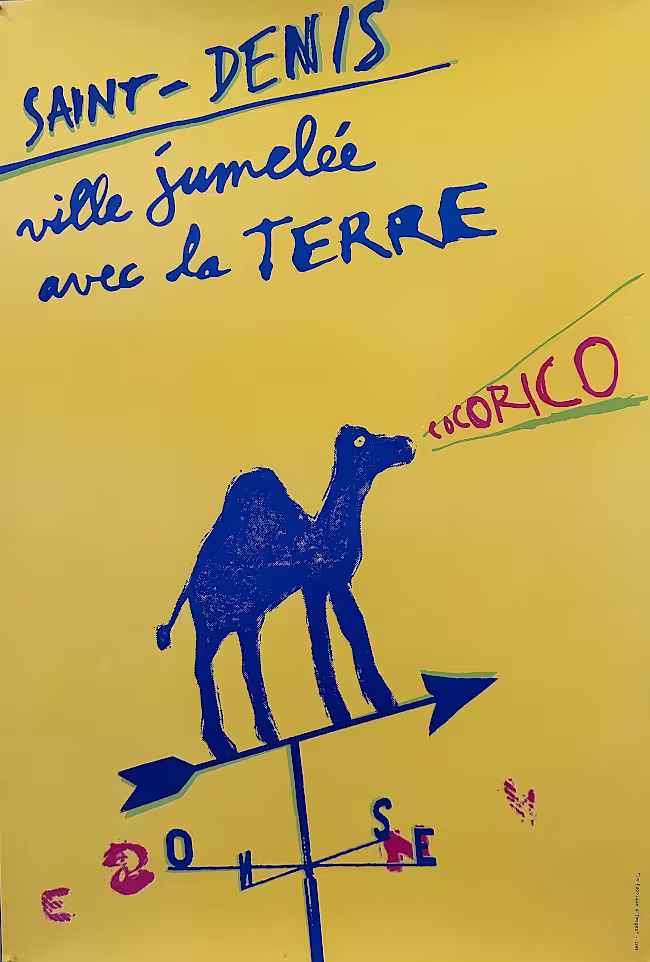 SAINT-DENIS
ville jumelée
avec la TERRE
COCORICO
S
O E
N
M
E